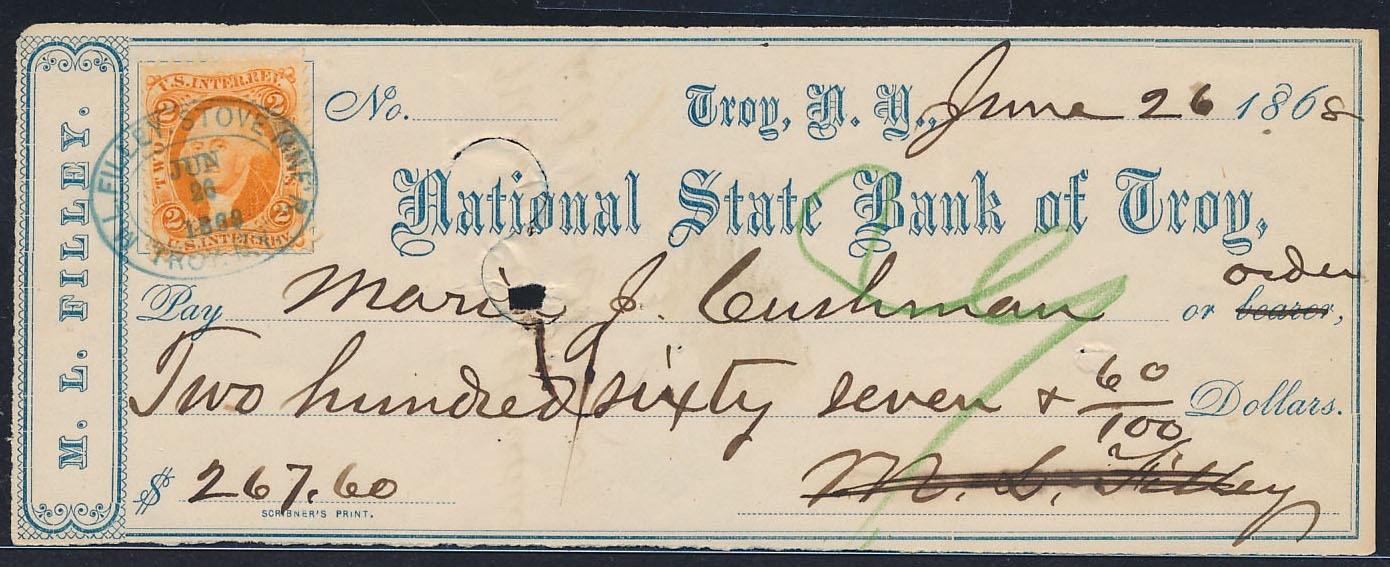 M. L. FILLEY.
U.S. INTER. REV.
2 2
TWO
2 2
U.S. INTER. REV.
M. L. FILLEY STOVE
JUN
26
TROY
No. Troy, N. Y., June 26 1868
National State Bank of Troy,
order
Pay Maria J. Cushman or bearer,
Two hundred sixty seven & 60/100 Dollars.
$ 267.60
M. L. Filley
SCRIBNER'S PRINT.